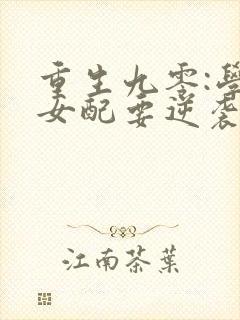 重生九零:學
女配要逆袭
江南茶葉